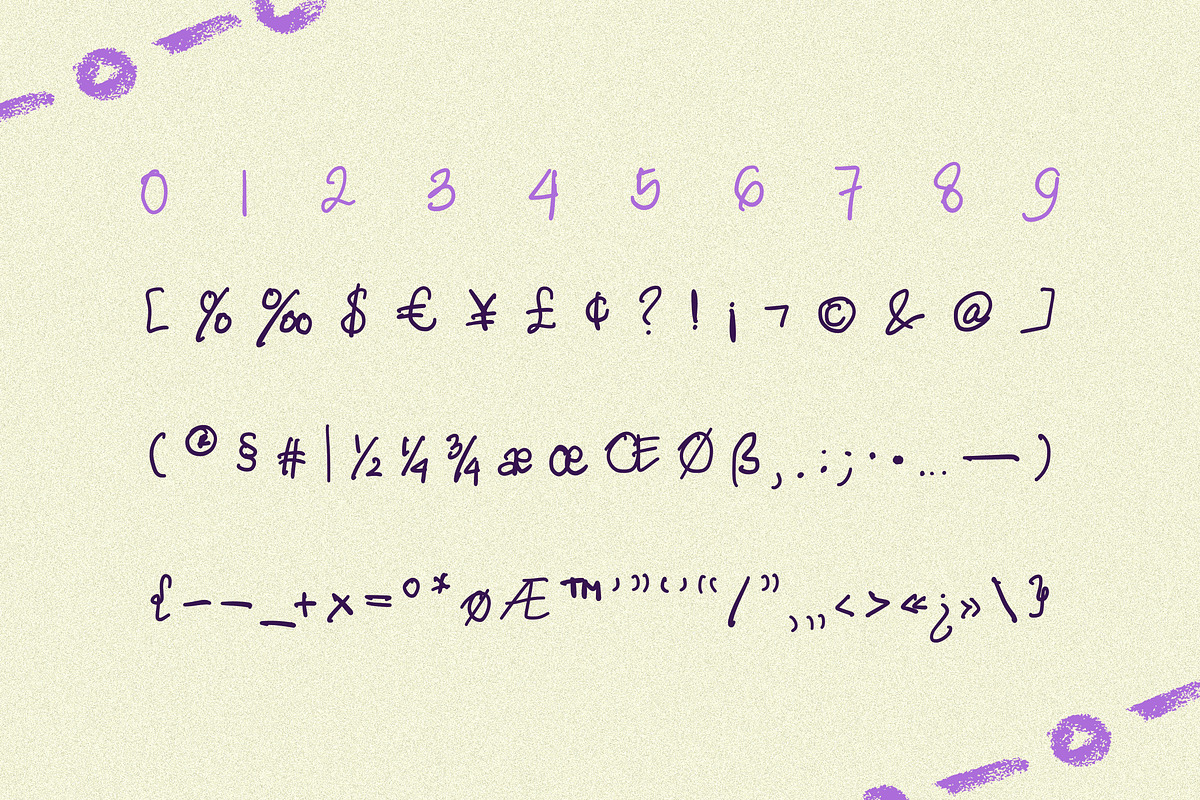 0 1 2 3 4 5 6 7 8 9
[ % ‰ $ € ¥ £ ¢ ? ! ¡ ¬ © & @ ]
( ® § # | ½ ¼ ¾ æ œ Œ Ø ß , . : ; · • … — )
{ - – _ + × = ° * ø Æ ™ ’ ” ‘ ’ “ / ” ‚ „ < > « ¿ » \ }